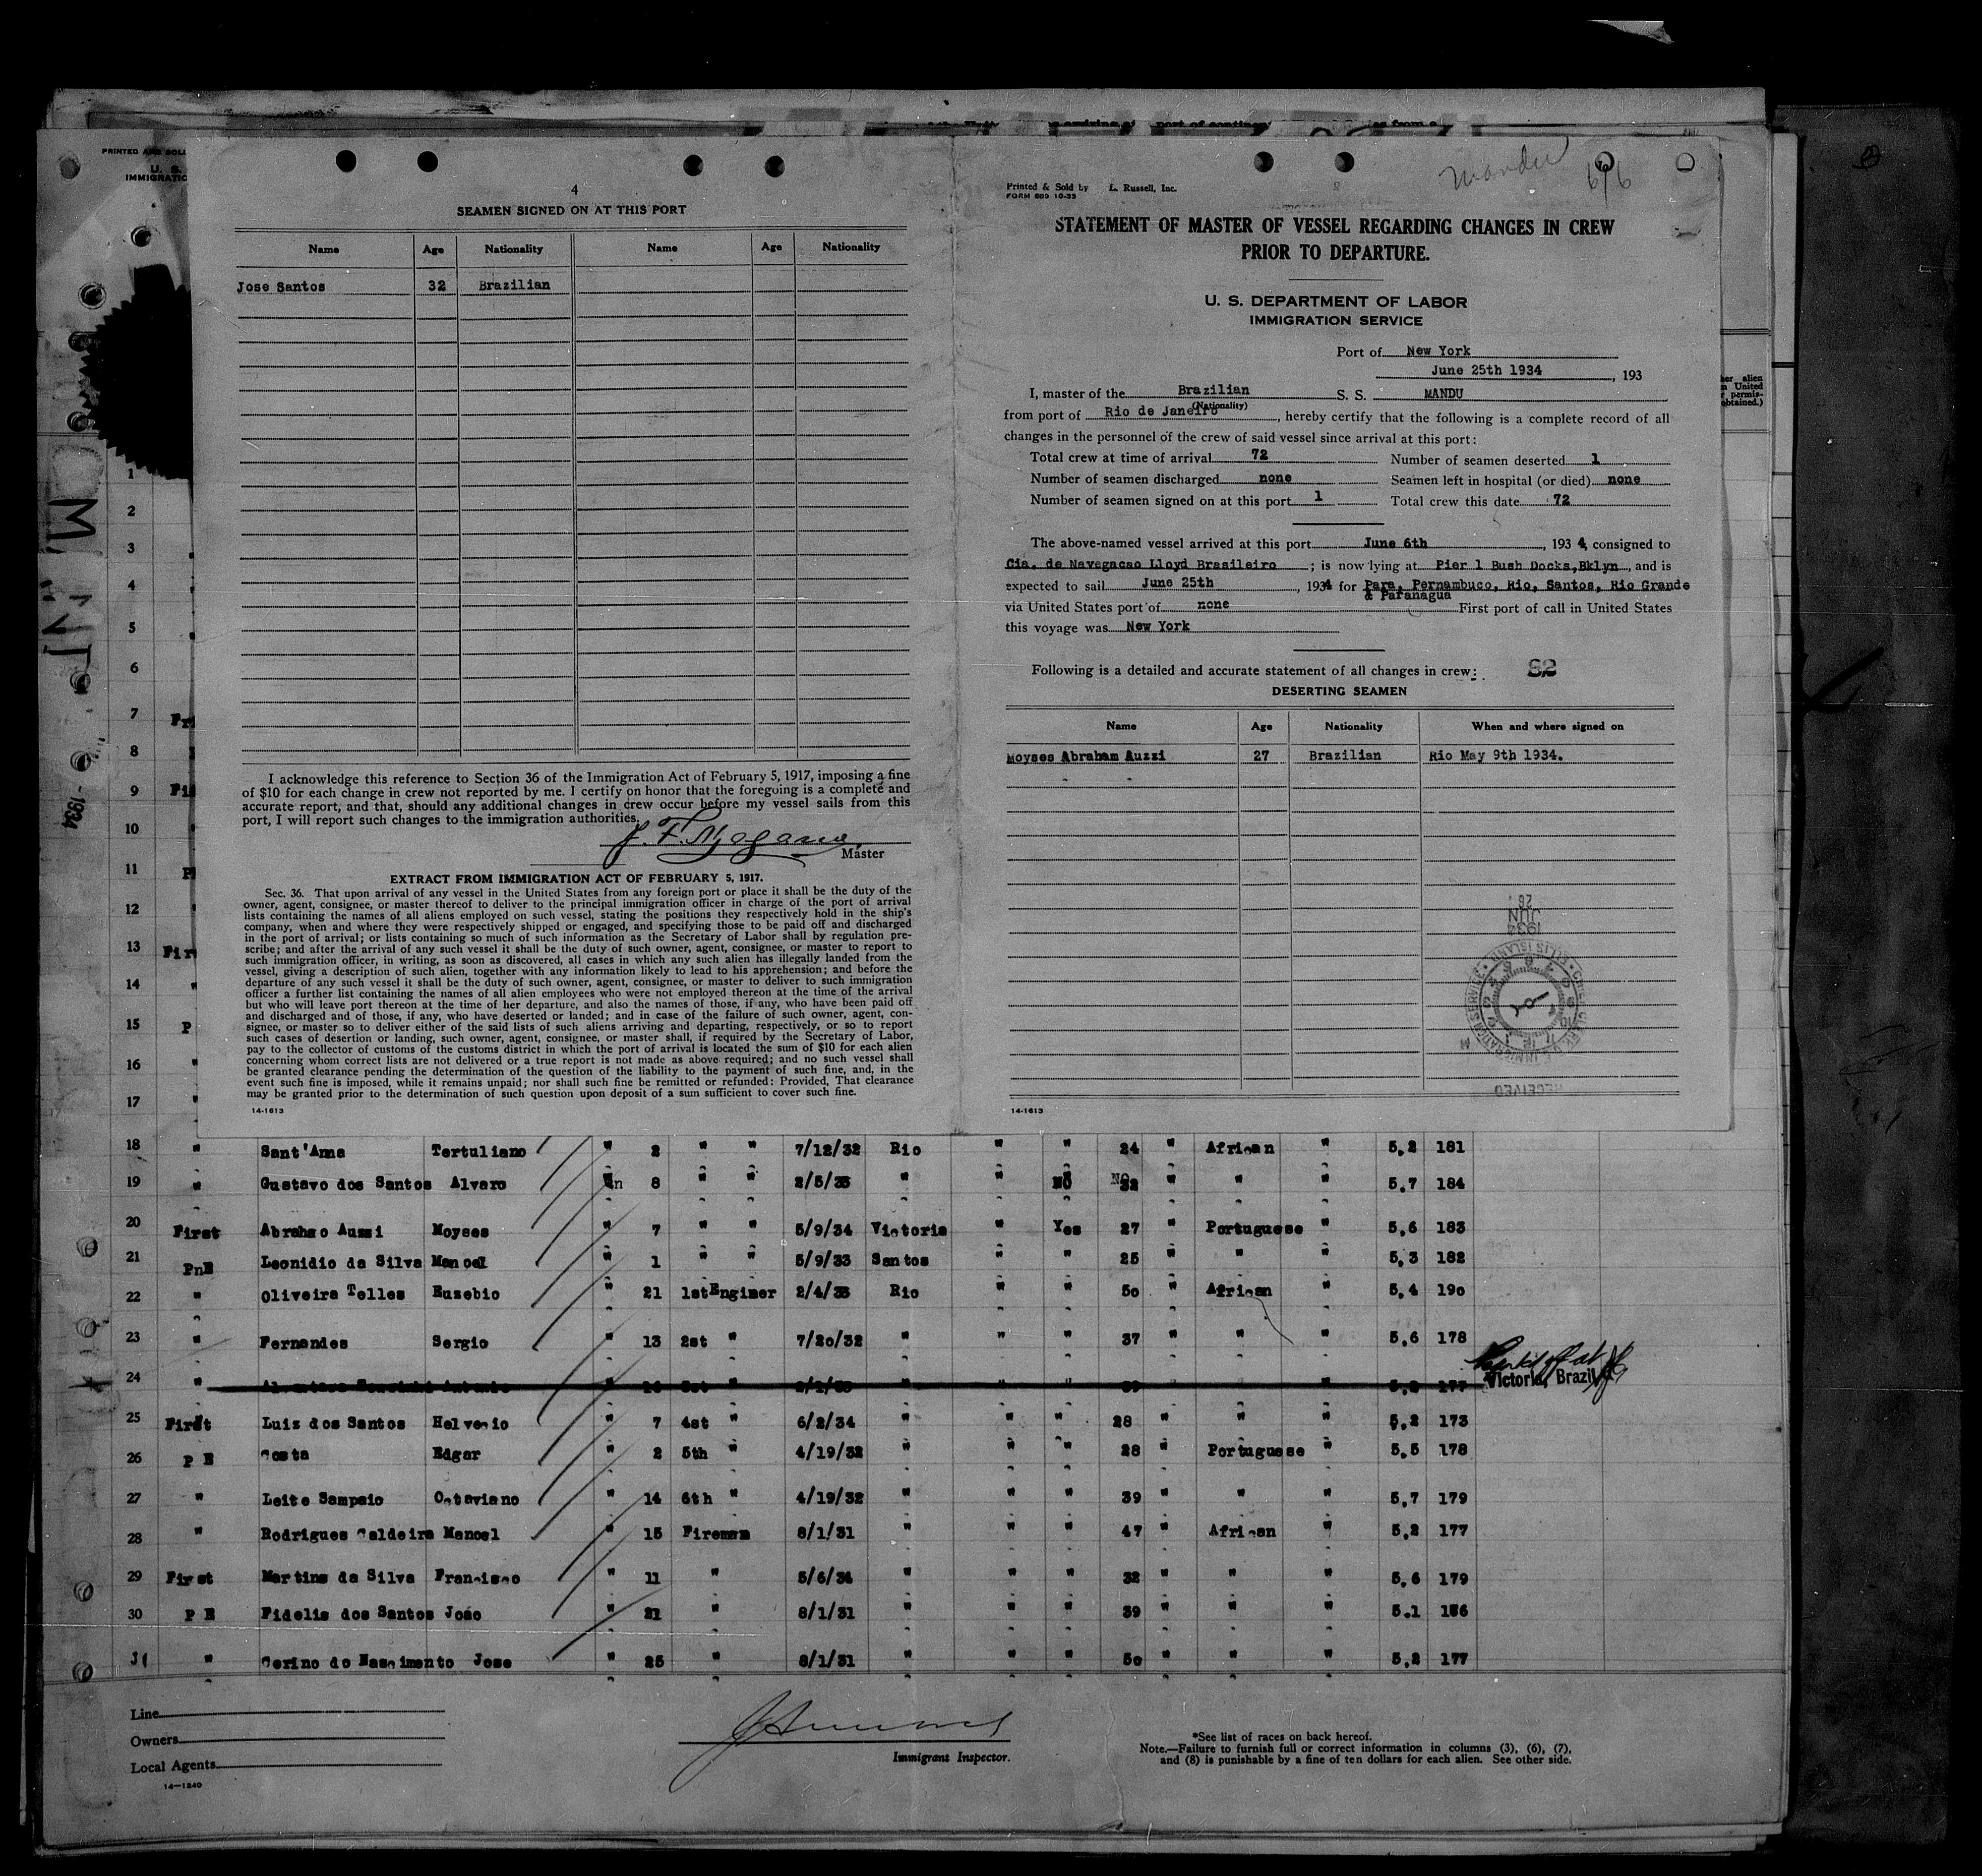 PRINTED AND SOLD
U. S.
IMMIGRATIC
4
SEAMEN SIGNED ON AT THIS PORT
Name Age Nationality Name Age Nationality
Jose Santos 32 Brazilian
I acknowledge this reference to Section 36 of the Immigration Act of February 5, 1917, imposing a fine
of $10 for each change in crew not reported by me. I certify on honor that the foregoing is a complete and
accurate report, and that, should any additional changes in crew occur before my vessel sails from this
port, I will report such changes to the immigration authorities.
Master
EXTRACT FROM IMMIGRATION ACT OF FEBRUARY 5, 1917.
Sec. 36. That upon arrival of any vessel in the United States from any foreign port or place it shall be the duty of the
owner, agent, consignee, or master thereof to deliver to the principal immigration officer in charge of the port of arrival
lists containing the names of all aliens employed on such vessel, stating the positions they respectively hold in the ship's
company, when and where they were respectively shipped or engaged, and specifying those to be paid off and discharged
in the port of arrival; or lists containing so much of such information as the Secretary of Labor shall by regulation pre-
scribe; and after the arrival of any such vessel it shall be the duty of such owner, agent, consignee, or master to report to
such immigration officer, in writing, as soon as discovered, all cases in which any such alien has illegally landed from the
vessel, giving a description of such alien, together with any information likely to lead to his apprehension; and before the
departure of any such vessel it shall be the duty of such owner, agent, consignee, or master to deliver to such immigration
officer a further list containing the names of all alien employees who were not employed thereon at the time of the arrival
but who will leave port thereon at the time of her departure, and also the names of those, if any, who have been paid off
and discharged and of those, if any, who have deserted or landed; and in case of the failure of such owner, agent, con-
signee, or master so to deliver either of the said lists of such aliens arriving and departing, respectively, or so to report
such cases of desertion or landing, such owner, agent, consignee, or master shall, if required by the Secretary of Labor,
pay to the collector of customs of the customs district in which the port of arrival is located the sum of $10 for each alien
concerning whom correct lists are not delivered or a true report is not made as above required; and no such vessel shall
be granted clearance pending the determination of the question of the liability to the payment of such fine, and, in the
event such fine is imposed, while it remains unpaid; nor shall such fine be remitted or refunded: Provided, That clearance
may be granted prior to the determination of such question upon deposit of a sum sufficient to cover such fine.
14-1613
Mandu 6/6
Printed & Sold by L. Russell, Inc.
FORM 689 10-33
STATEMENT OF MASTER OF VESSEL REGARDING CHANGES IN CREW
PRIOR TO DEPARTURE.
U. S. DEPARTMENT OF LABOR
IMMIGRATION SERVICE
Port of New York
June 25th 1934, 193
I, master of the Brazilian S. S. MANDU
(Nationality)
from port of Rio de Janeiro, hereby certify that the following is a complete record of all
changes in the personnel of the crew of said vessel since arrival at this port:
Total crew at time of arrival 72 Number of seamen deserted 1
Number of seamen discharged none Seamen left in hospital (or died) none
Number of seamen signed on at this port 1 Total crew this date 72
The above-named vessel arrived at this port June 6th, 1934, consigned to
Cia. de Navegacao Lloyd Brasileiro; is now lying at Pier 1 Bush Docks, Bklyn, and is
expected to sail June 25th, 1934 for Para, Pernambuco, Rio, Santos, Rio Grande
& Paranagua
via United States port of none First port of call in United States
this voyage was New York
Following is a detailed and accurate statement of all changes in crew: 82
DESERTING SEAMEN
Name Age Nationality When and where signed on
Moyses Abraham Auzzi 27 Brazilian Rio May 9th 1934.
26
JUN
1934
RECEIVED
14-1613
her alien
n United
r permis-
obtained.)
- 1934
1
2
3
4
5
6
7
8
9
10
11
12
13
14
15
16
17
18 " Sant'Anna Tertuliano " 2 " " 7/12/32 Rio " " 24 " African " 5,2 181
19 " Gustavo dos Santos Alvaro 8 " " 2/5/35 " " NO 32 " " " 5.7 184
20 First Abrahao Auzzi Moyses " 7 " " 5/9/34 Victoria " Yes 27 " Portuguese " 5,6 183
21 PnE Leonidio da Silva Manoel " 1 " " 5/9/33 Santos " " 25 " " " 5,3 182
22 " Oliveira Telles Eusebio " 21 1stEnginer 2/4/33 Rio " " 50 " African " 5,4 190
23 " Fernandes Sergio " 13 2st " 7/20/32 " " " 37 " " " 5,6 178
24 "
Victoria, Brazil
25 First Luiz dos Santos Helvecio " 7 4st " 6/2/34 " " " 28 " " " 5,2 173
26 P E Costa Edgar " 2 5th " 4/19/32 " " " 28 " Portuguese " 5,5 178
27 " Leite Sampaio Octaviano " 14 6th " 4/19/32 " " " 39 " " " 5,7 179
28 " Rodrigues Caldeira Manoel " 15 Fireman 8/1/31 " " " 47 " African " 5,2 177
29 First Martins da Silva Francisco " 11 " 5/6/34 " " " 32 " " " 5,6 179
30 P E Fidelis dos Santos João " 21 " 8/1/31 " " " 39 " " " 5.1 186
31 " Cerino do Nascimento Jose " 25 " 8/1/31 " " " 50 " " " 5,2 177
Line
Owners
Local Agents
14-1240
Immigrant Inspector.
*See list of races on back hereof.
Note.—Failure to furnish full or correct information in columns (3), (6), (7),
and (8) is punishable by a fine of ten dollars for each alien. See other side.